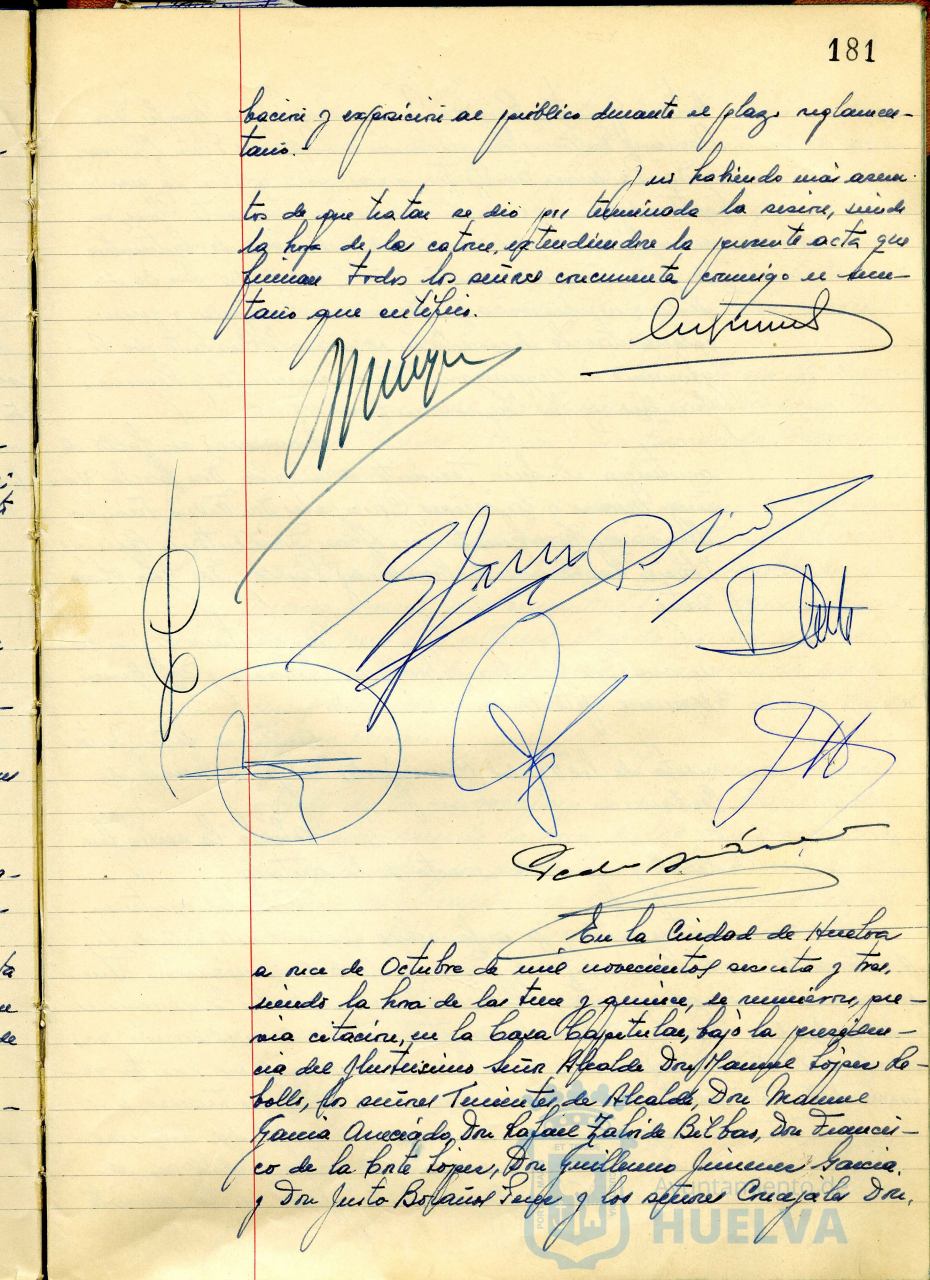 181
bación y exposición al público durante el plazo reglamen-
tario.-
Y no habiendo más asun-
tos de que tratar se dió por terminada la sesión, siendo
la hora de las catorce, extendiéndose la presente acta que
firman todos los señores concurrentes conmigo el secre-
tario que certifico.
En la Ciudad de Huelva
a once de Octubre de mil novecientos sesenta y tres,
siendo la hora de las trece y quince, se reunieron, pre-
via citación, en la Casa Capitular, bajo la presiden-
cia del Ilustrísimo Señor Alcalde Don Manuel López Re-
bollo, los señores Tenientes de Alcalde, Don Manuel
García Don Rafael Zalvide Bilbao, Don Francis-
co de la Corte López, Don Guillermo Jimenez García,
y Don Justo Bolaños y los señores Concejales Don,
Ayuntamiento de
HUELVA